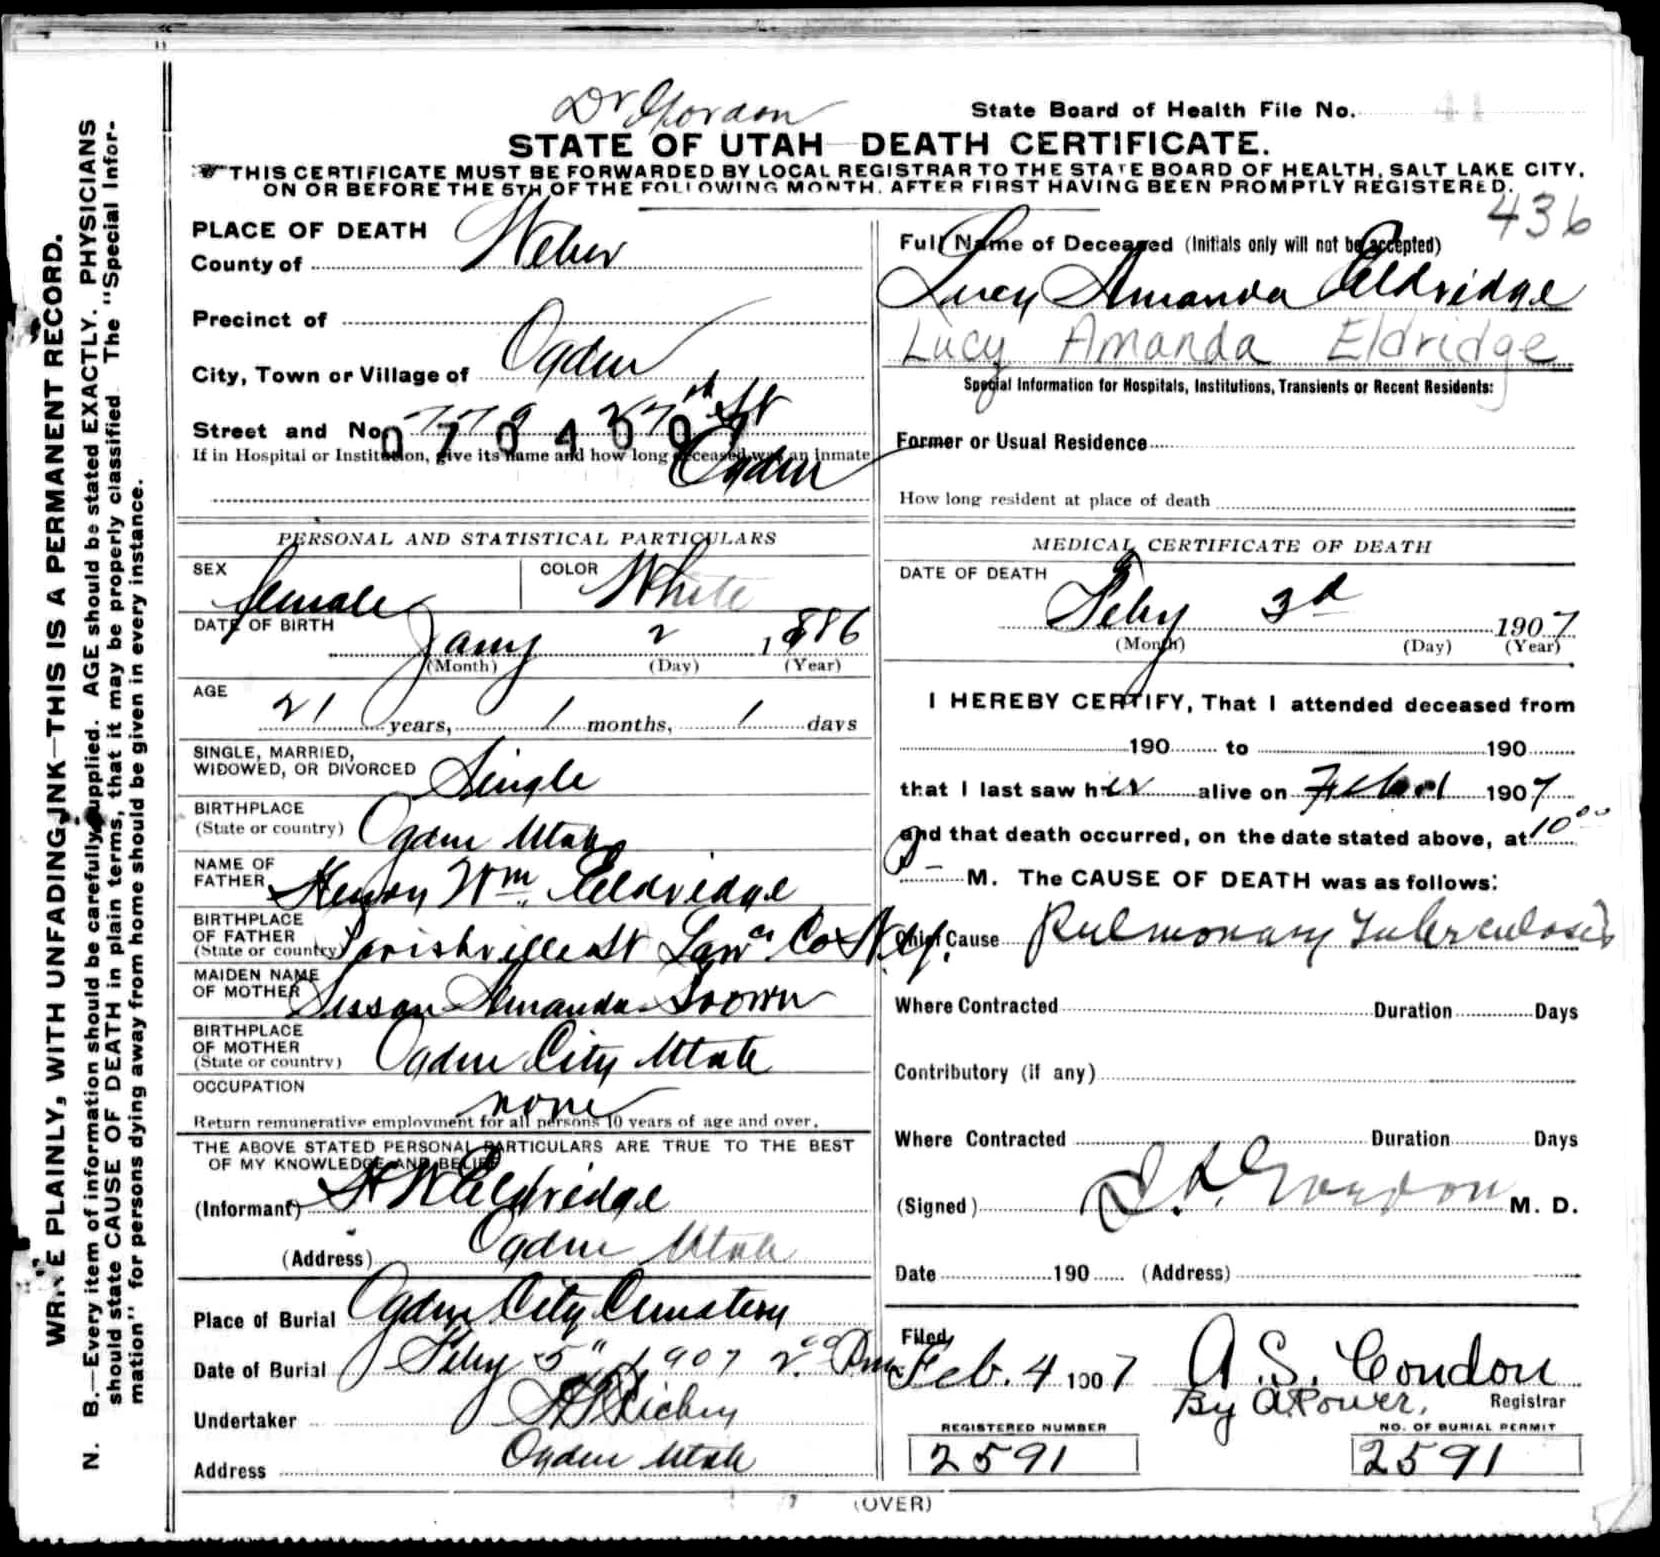 WRITE PLAINLY, WITH UNFADING INK—THIS IS A PERMANENT RECORD.
N. B.—Every item of information should be carefully supplied. AGE should be stated EXACTLY. PHYSICIANS
should state CAUSE OF DEATH in plain terms, that it may be properly classified. The "Special Infor-
mation" for persons dying away from home should be given in every instance.
Dr Gordon
State Board of Health File No. 41
STATE OF UTAH—DEATH CERTIFICATE.
THIS CERTIFICATE MUST BE FORWARDED BY LOCAL REGISTRAR TO THE STATE BOARD OF HEALTH, SALT LAKE CITY,
ON OR BEFORE THE 5TH OF THE FOLLOWING MONTH, AFTER FIRST HAVING BEEN PROMPTLY REGISTERED.
436
PLACE OF DEATH
County of Weber
Precinct of
City, Town or Village of Ogden
Street and No. 779 27th St
0704007
If in Hospital or Institution, give its name and how long deceased was an inmate
Ogden
Full Name of Deceased (Initials only will not be accepted)
Lucy Amanda Eldridge
Lucy Amanda Eldridge
Special Information for Hospitals, Institutions, Transients or Recent Residents:
Former or Usual Residence
How long resident at place of death
PERSONAL AND STATISTICAL PARTICULARS
SEX female COLOR White
DATE OF BIRTH Jany 2 1886
(Month) (Day) (Year)
AGE
21 years, 1 months, 1 days
SINGLE, MARRIED,
WIDOWED, OR DIVORCED Single
BIRTHPLACE
(State or country) Ogden Utah
NAME OF
FATHER Henry Wm Eldridge
BIRTHPLACE
OF FATHER
(State or country) Parishville St Lawce Co N.Y.
MAIDEN NAME
OF MOTHER Susan Amanda Brown
BIRTHPLACE
OF MOTHER
(State or country) Ogden City Utah
OCCUPATION
none
Return remunerative employment for all persons 10 years of age and over.
THE ABOVE STATED PERSONAL PARTICULARS ARE TRUE TO THE BEST
OF MY KNOWLEDGE AND BELIEF
(Informant) H W Eldridge
(Address) Ogden Utah
Place of Burial Ogden City Cemetery
Date of Burial Feby 5" 1907 2.00 Pm
Undertaker Richey
Address Ogden Utah
MEDICAL CERTIFICATE OF DEATH
DATE OF DEATH
Feby 3d 1907
(Month) (Day) (Year)
I HEREBY CERTIFY, That I attended deceased from
190 to 190
that I last saw her alive on 1907
and that death occurred, on the date stated above, at 10 00
M. The CAUSE OF DEATH was as follows:
Chief Cause Pulmonary Tuberculosis
Where Contracted Duration Days
Contributory (if any)
Where Contracted Duration Days
(Signed) Gordon M. D.
Date 190 (Address)
Filed
Feb. 4 1907 A. S. Condon
By A. Power. Registrar
REGISTERED NUMBER
2591
NO. OF BURIAL PERMIT
2591
(OVER)